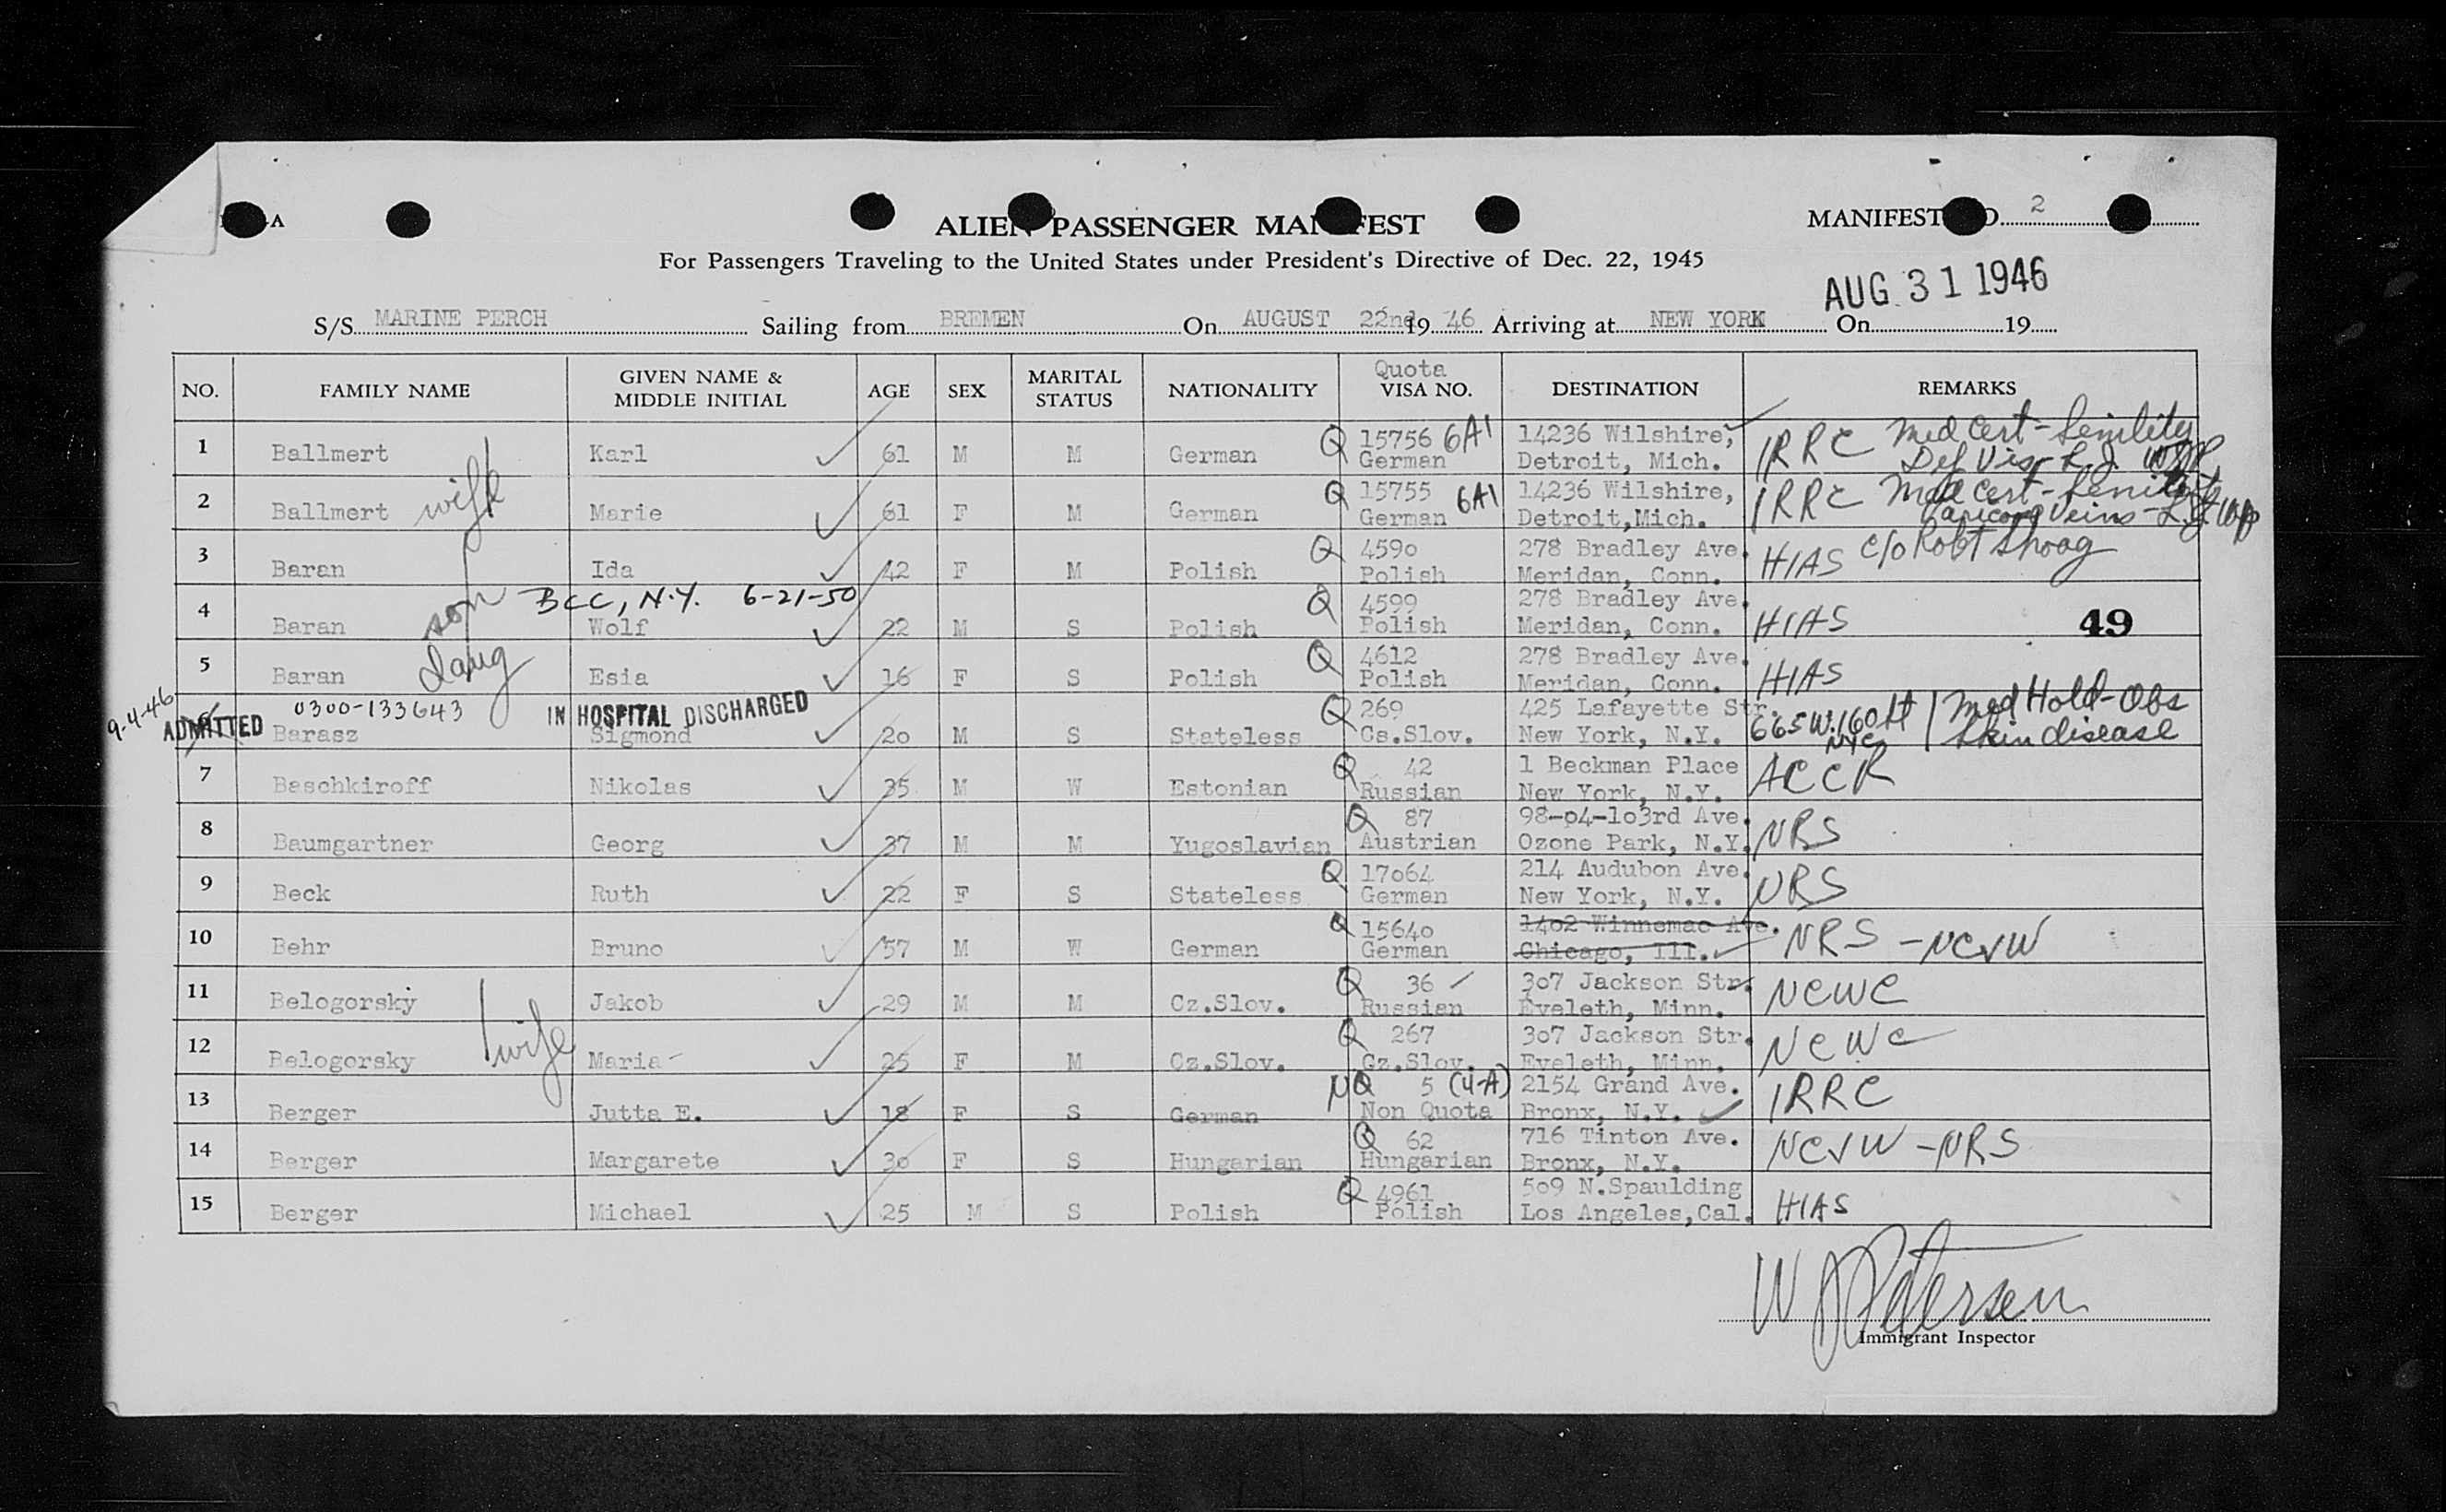 -A
ALIEN PASSENGER MANIFEST
MANIFEST O. 2
For Passengers Traveling to the United States under President's Directive of Dec. 22, 1945
AUG 31 1946
S/S MARINE PERCH Sailing from BREMEN On AUGUST 22nd 19 46 Arriving at NEW YORK On 19
NO. FAMILY NAME GIVEN NAME & MIDDLE INITIAL AGE SEX MARITAL STATUS NATIONALITY Quota VISA NO. DESTINATION REMARKS
1 Ballmert Karl 61 M M German Q 15756 6A1 German 14236 Wilshire, Detroit, Mich. IRRC Med Cert - Senility Def Vis
2 Ballmert wife Marie 61 F M German Q 15755 6A1 German 14236 Wilshire, Detroit,Mich. IRRC Med Cert - Senility Varicose Veins
3 Baran Ida 42 F M Polish Q 4590 Polish 278 Bradley Ave. Meridan, Conn. HIAS c/o Robt Shoag
BCC, N.Y. 6-21-50
4 Baran son Wolf 22 M S Polish Q 4599 Polish 278 Bradley Ave. Meridan, Conn. HIAS 49
5 Baran daug Esia 16 F S Polish Q 4612 Polish 278 Bradley Ave. Meridan, Conn. HIAS
9-4-46 ADMITTED 0300-133643 IN HOSPITAL DISCHARGED
Barasz Sigmond 20 M S Stateless Q 269 Cs.Slov. 425 Lafayette Str. New York, N.Y. 665 W. 160 St NYC Med Hold - Obs Skin disease
7 Baschkiroff Nikolas 35 M W Estonian Q 42 Russian 1 Beckman Place New York, N.Y. ACCR
8 Baumgartner Georg 37 M M Yugoslavian Q 87 Austrian 98-o4-1o3rd Ave. Ozone Park, N.Y. NRS
9 Beck Ruth 22 F S Stateless Q 17o64 German 214 Audubon Ave. New York, N.Y. NRS
10 Behr Bruno 57 M W German Q 1564o German 14o2 Winnemac Ave. Chicago, Ill. NRS - NCJW
11 Belogorsky Jakob 29 M M Cz.Slov. Q 36 Russian 3o7 Jackson Str. Eveleth, Minn. NCWC
12 Belogorsky wife Maria 25 F M Cz.Slov. Q 267 Cz.Slov. 3o7 Jackson Str. Eveleth, Minn. NCWC
13 Berger Jutta E. 18 F S German NQ 5 (4-A) Non Quota 2154 Grand Ave. Bronx, N.Y. IRRC
14 Berger Margarete 3o F S Hungarian Q 62 Hungarian 716 Tinton Ave. Bronx, N.Y. NCJW - NRS
15 Berger Michael 25 M S Polish Q 4961 Polish 5o9 N.Spaulding Los Angeles,Cal. HIAS
W Petersen
Immigrant Inspector